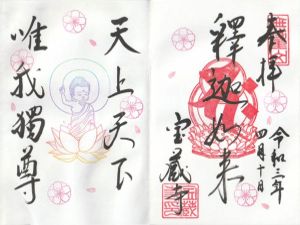 奉拝
釋迦如来
令和三年
四月十日
宝蔵寺
天上天下
唯我獨尊